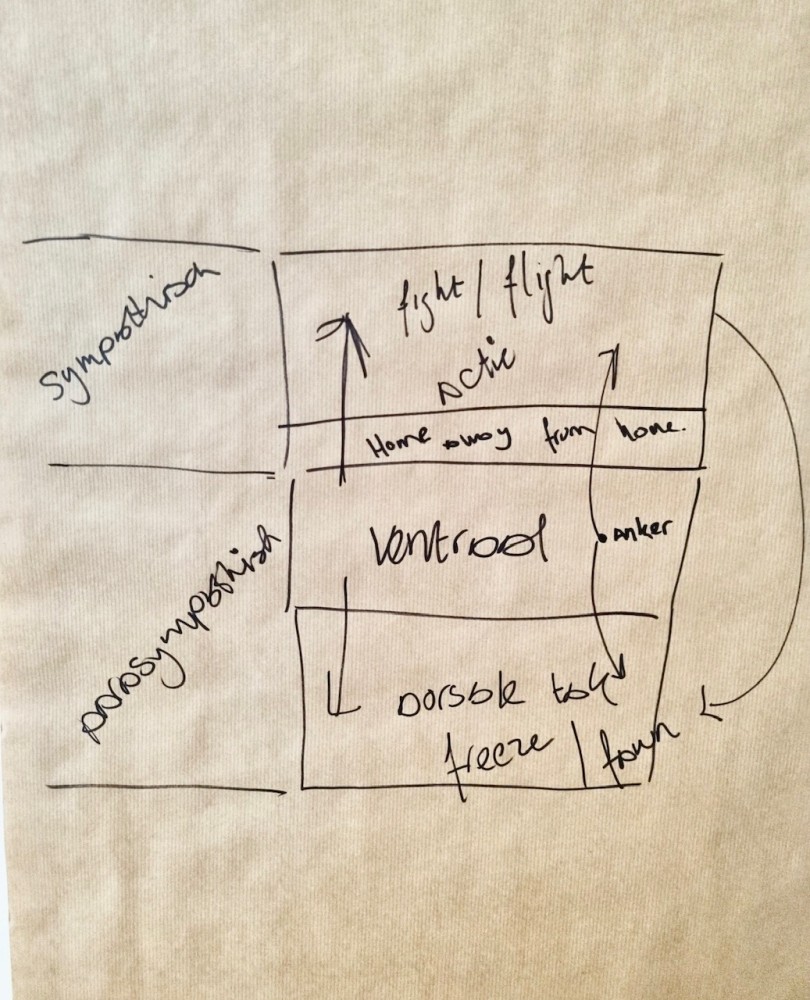 sympathisch
fight / flight
actie
Home away from home.
Ventraal
anker
parasympathisch
Dorsale tak
freeze / fawn